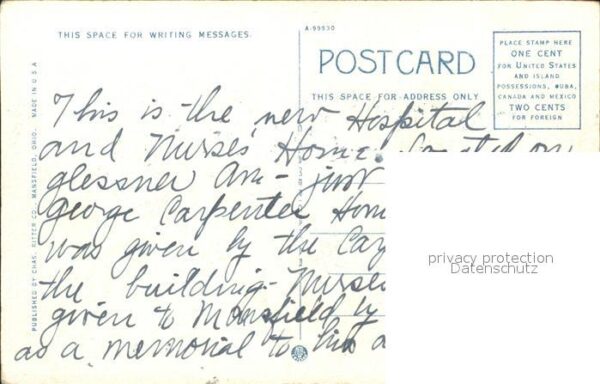 THIS SPACE FOR WRITING MESSAGES.
A-99930
POST CARD
THIS SPACE FOR ADDRESS ONLY
PLACE STAMP HERE
ONE CENT
FOR UNITED STATES
AND ISLAND
POSSESSIONS, CUBA,
CANADA AND MEXICO
TWO CENTS
FOR FOREIGN
PUBLISHED BY CHAS. RITTER CO., MANSFIELD, OHIO. MADE IN U.S.A
This is the new Hospital
and Nurses' Home. Located on
glessner Am - just
George Carpenter Hom
was given by the Car
the building - Nurse
given to Mansfield by
as a memorial to his
privacy protection
Datenschutz